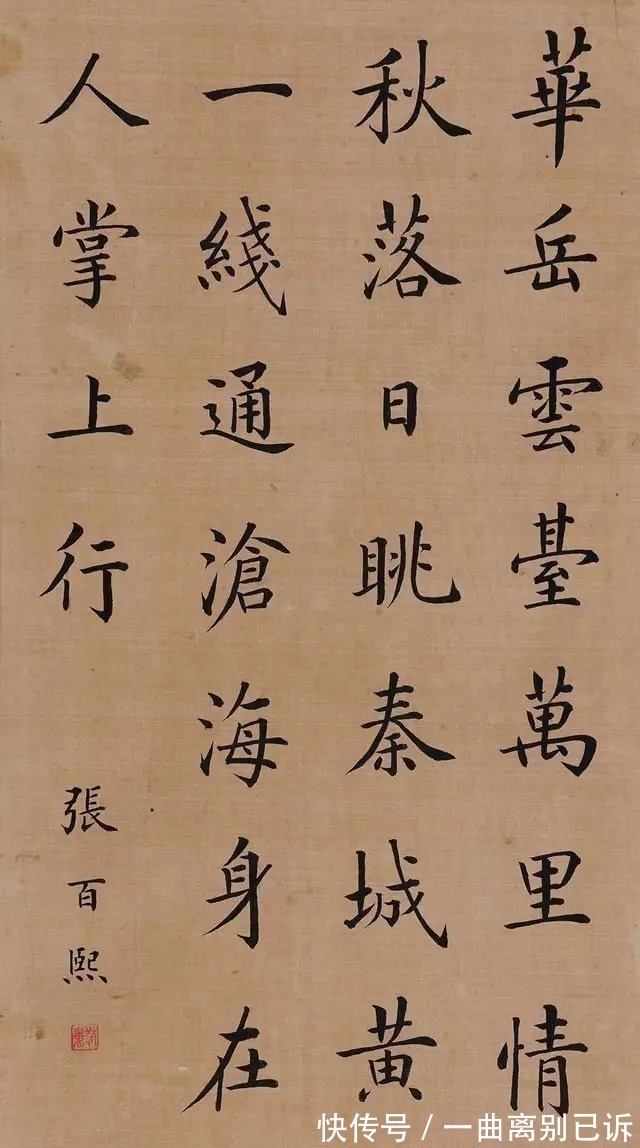 華岳雲臺萬里情
秋落日眺秦城黄
一綫通滄海身在
人掌上行
張百熙
快传号/一曲离别已诉